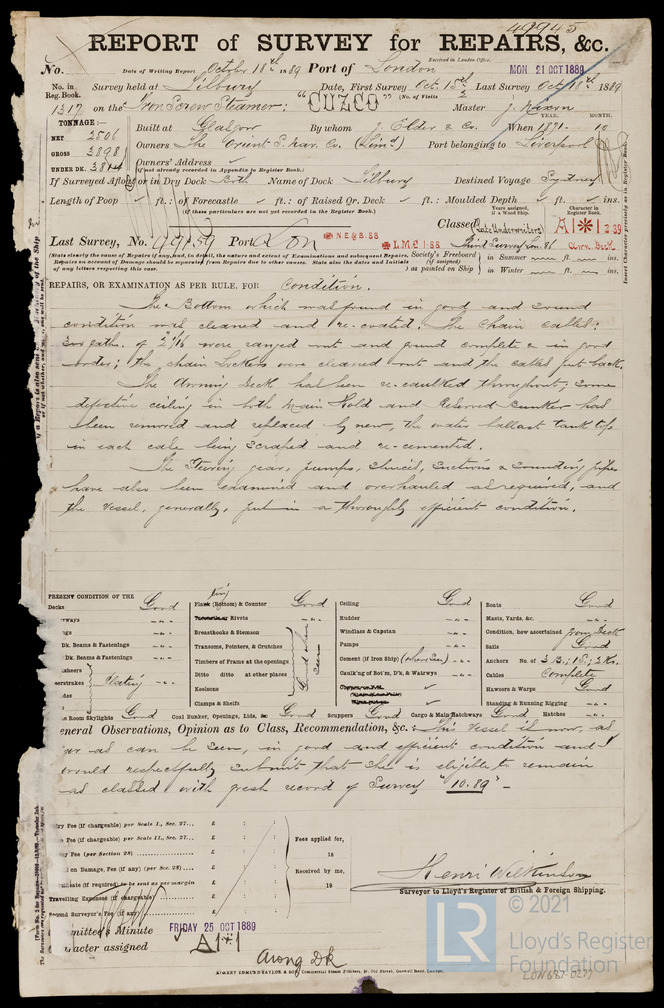 49945
REPORT of SURVEY for REPAIRS, &c.
Received in London Office,
No. Date of Writing Report October 18th 1889 Port of London MON. 21 OCT 1889
No. in Reg. Book. Survey held at Tilbury Date, First Survey Oct. 15th Last Survey Oct 18th 1889
(No. of Visits 3
1317 on the Iron Screw Steamer: "CUZCO" Master J. Nixon
TONNAGE:— YEAR. MONTH.
NET 2506 Built at Glasgow By whom J. Elder & Co. When 1871 - 10
GROSS 3898 Owners The Orient S. Nav. Co. (Lim'd) Port belonging to Liverpool
UNDER DK. 3844 Owners' Address ✓
(if not already recorded in Appendix to Register Book.)
If Surveyed Afloat or in Dry Dock Both Name of Dock Tilbury Destined Voyage Sydney
Length of Poop ✓ ft.: of Forecastle ✓ ft.: of Raised Qr. Deck ✓ ft.: Moulded Depth ✓ ft. ✓ ins.
(if these particulars are not yet recorded in the Register Book.)
Years assigned, if a Wood Ship. Character in Register Book.
Classed Late Underwriters A✱1 2.89
Last Survey, No. Port Lon N.E&B.88 L.M.C 1.88 Third Survey Lon. 81 Awn. Deck
(State clearly the cause of Repairs of any, and, in detail, the nature and extent of Examinations and subsequent Repairs.
Repairs on account of Damage should be separated from Repairs due to other causes. State also the dates and initials
of any letters respecting this case.
Society's Freeboard (if assigned) as painted on Ship
in Summer ft. ins.
in Winter ft. ins.
REPAIRS, OR EXAMINATION AS PER RULE, FOR Condition.
The Bottom which was found in good and sound
condition was cleaned and re-coated. The chain cables:
300 fath. of 2 2/16 were ranged out and found complete & in good
order; the chain Lockers were cleaned out and the cables put back.
The Awning Deck has been re-caulked throughout; some
defective ceiling in both Main Hold and Reserved Bunker has
been removed and replaced by new, the water ballast tank tops
in each case being scraped and re-cemented.
The Steering gear, pumps, sluices, suctions & sounding pipes
have also been examined and overhauled as required, and
the vessel, generally, put in a thoroughly efficient condition.
PRESENT CONDITION OF THE
Decks Good
Dk. Beams & Fastenings
Dk. Beams & Fastenings
Plating
Room Skylights Good
Plank (Bottom) & Counter Good
Rivets
Breasthooks & Stemson
Transoms, Pointers, & Crutches
Timbers of Frame at the openings
Ditto ditto at other places
Keelsons
Clamps & Shelfs
Good where seen
Coal Bunker, Openings, Lids, &c. Good
Ceiling Good
Rudder
Windlass & Capstan
Pumps
Cement (if Iron Ship) (where seen)
Caulk'ng of Bot'm, D'ks, & Watrwys
Scuppers Good Cargo & Main Hatchways Good Hatches
Boats Good
Masts, Yards, &c.
Condition, how ascertained from Deck
Sails Good
Anchors No. of 3 B.; 1 S.; 2 K.
Cables Complete
Hawsers & Warps Good
Standing & Running Rigging
General Observations, Opinion as to Class, Recommendation, &c.: This Vessel is now, as
far as can be seen, in good and efficient condition and I
would respectfully submit that she is eligible to remain
as classed with fresh record of Survey "10.89" -
ry Fee (if chargeable) per Scale I., Sec. 27... £ : :
Fee (if chargeable) per Scale II., Sec. 27... £ : :
Fee (per Section 28) £ : :
on Damage, Fee (if any) (per Sec. 28) £ : :
(if required) to be sent as per margin £
Travelling Expenses (if chargeable) £
Second Surveyor's Fee (if any) £
Fees applied for,
18
Received by me,
18
Henri Wilkinson
Surveyor to Lloyd's Register of British & Foreign Shipping.
Committee's Minute FRIDAY 25 OCT 1889
Character assigned A1✱1
Awng Dk
ROBERT EDMUND TAYLOR & SON, Commercial Steam Printers, 19, Old Street, Goswell Road, London.
© 2021
LR Lloyd's Register
Foundation
LON687-0277